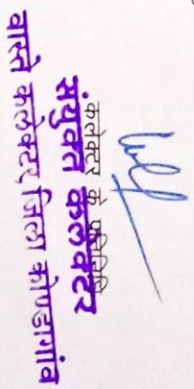 कलेक्टर के प्रतिनिधि
संयुक्त कलेक्टर
वास्ते कलेक्टर, जिला कोण्डागांव